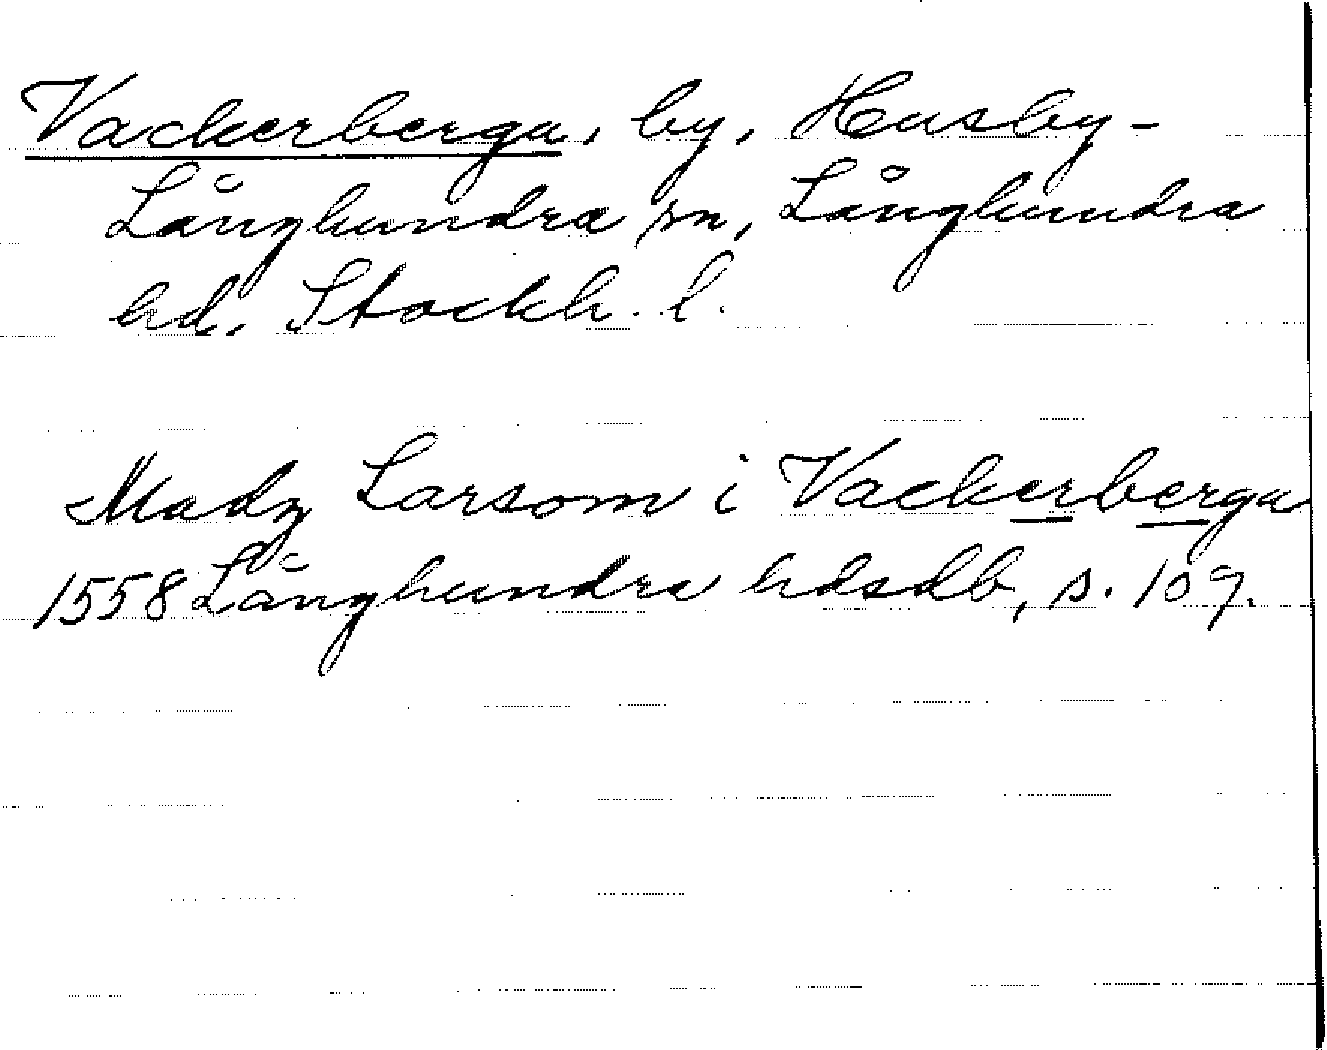 Vackerberga, by, Husby-
Långhundra sn, Långhundra
hd, Stockh. l.
Madz Larsom i Vackerberga
1558 Långhundra hdsdb, s. 109.